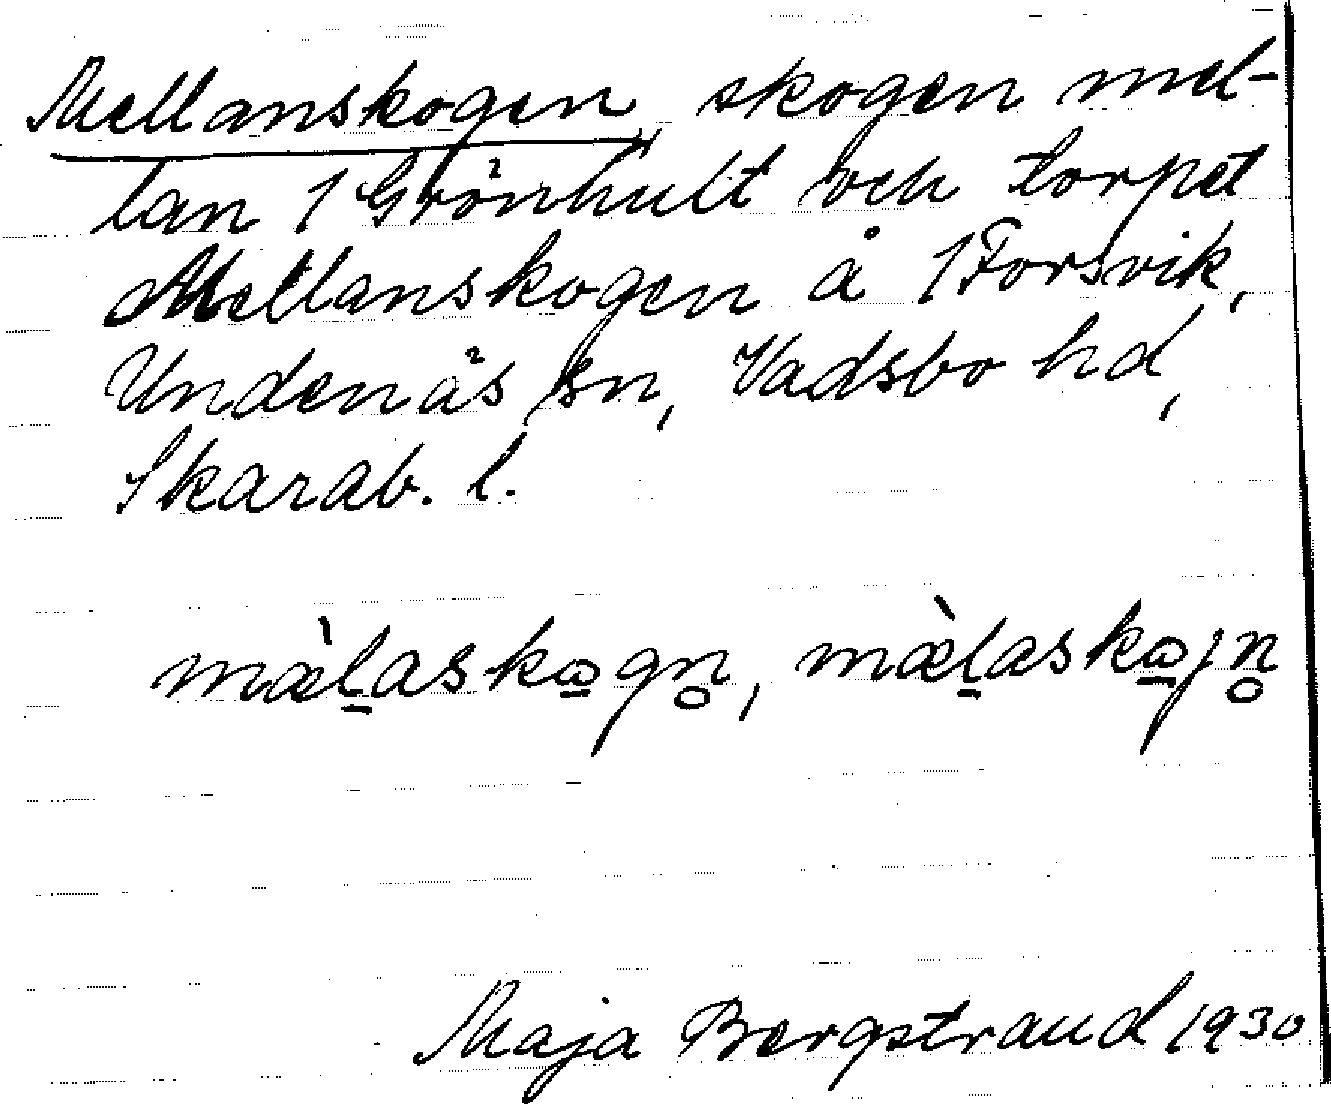 Mellanskogen, skogen mel-
lan 1 Grönhult och torpet
Mellanskogen å 1 Forsvik,
Undenäs sn, Vadsbo hd,
Skarab. l.
mæ̀l̠askω̠gn̥, mæ̀l̠askω̠jn̥
Maja Bergstrand 1930